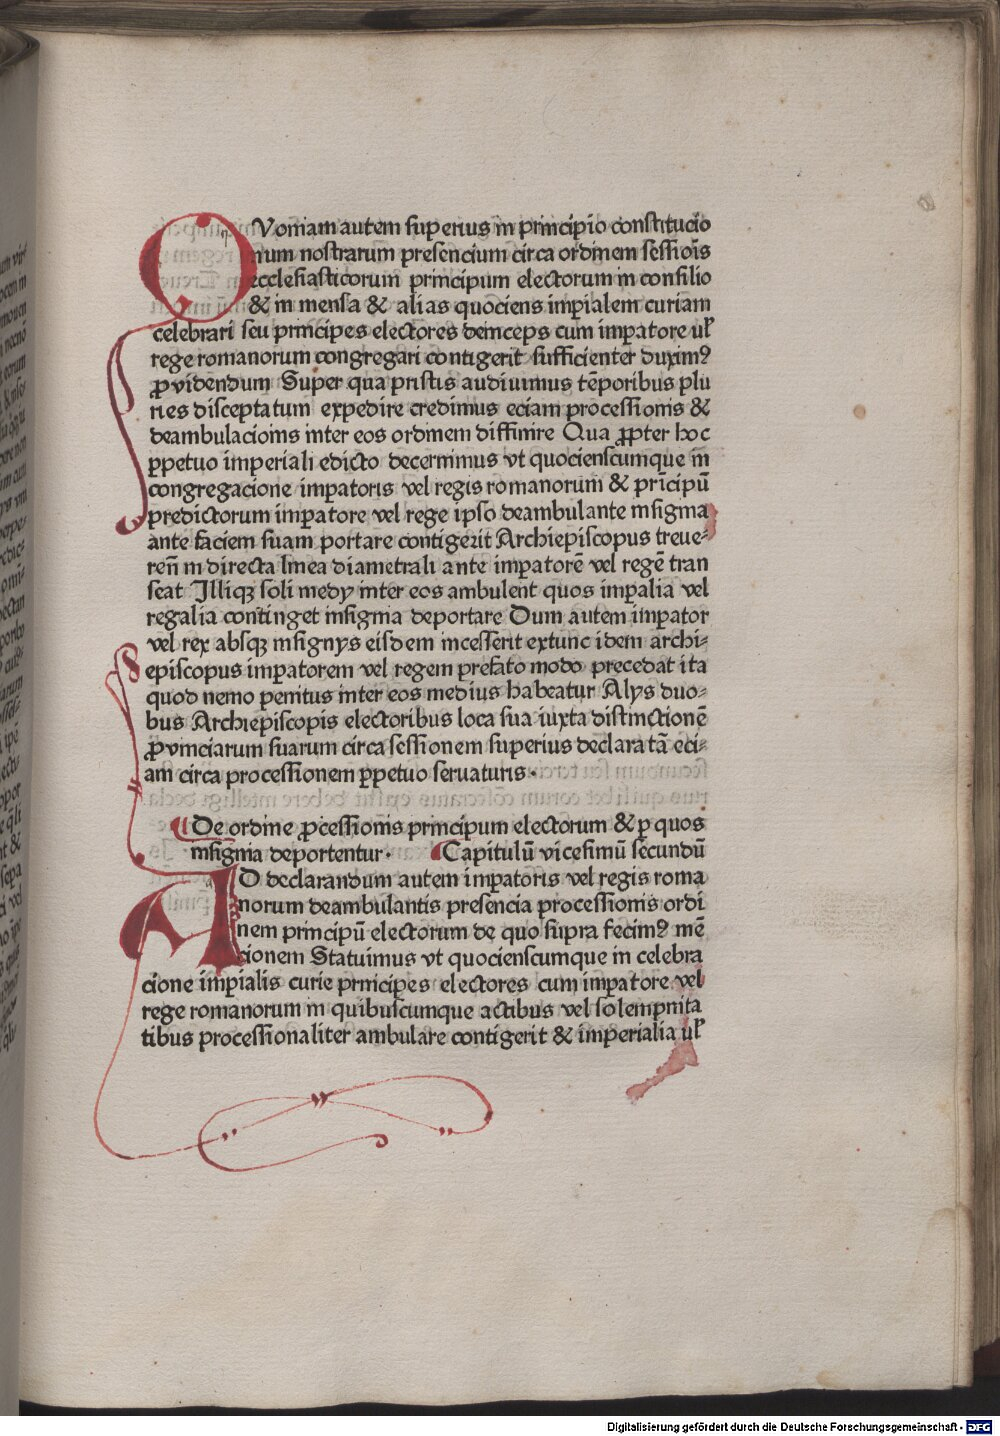 QVoniam autem superius in principio constitucio
num nostrarum presencium circa ordinem sessiōis
ecclesiasticorum principum electorum in consilio
& in mensa & alias quociens imꝑialem curiam
celebrari seu principes electores deinceps cum imꝑatore uł
rege romanorum congregari contigerit sufficienter duximꝰ
ꝓvidendum Super qua pristis audiuimus tēporibus plu
ries disceptatum expedire credimus eciam processionis &
deambulacionis inter eos ordinem diffinire Qua ꝓpter hoc
ꝑpetuo imperiali edicto decernimus vt quocienscumque in
congregacione imꝑatoris vel regis romanorum & prīcipū
predictorum imꝑatore vel rege ipso deambulante insignia
ante faciem suam portare contigerit Archiepiscopus treue-
reñ in directa linea diametrali ante imꝑatorē vel regē tran
seat Illiqꝫ soli medy inter eos ambulent quos imꝑalia vel
regalia continget insignia deportare Dum autem imꝑator
vel rex absqꝫ insignys eisdem incesserit extunc idem archi-
episcopus imꝑatorem vel regem prefato modo precedat ita
quod nemo penitus inter eos medius habeatur Alys duo-
bus Archiepiscopis electoribus loca sua iuxta distinctionē
ꝓvinciarum suarum circa sessionem superius declaratā eci-
am circa processionem ꝑpetuo seruaturis.
De ordine ꝓcessionis principum electorum & ꝑ quos
insignia deportentur. Capitulū vicesimū secundū
AD declarandum autem imꝑatoris vel regis roma
norum deambulantis presencia processionis ordi
nem principū electorum de quo supra fecimꝰ mē
cionem Statuimus vt quocienscumque in celebra
cione imꝑialis curie principes electores cum imꝑatore vel
rege romanorum in quibuscumque actibus vel solempnita
tibus processionaliter ambulare contigerit & imperialia uł
Digitalisierung gefördert durch die Deutsche Forschungsgemeinschaft - DFG